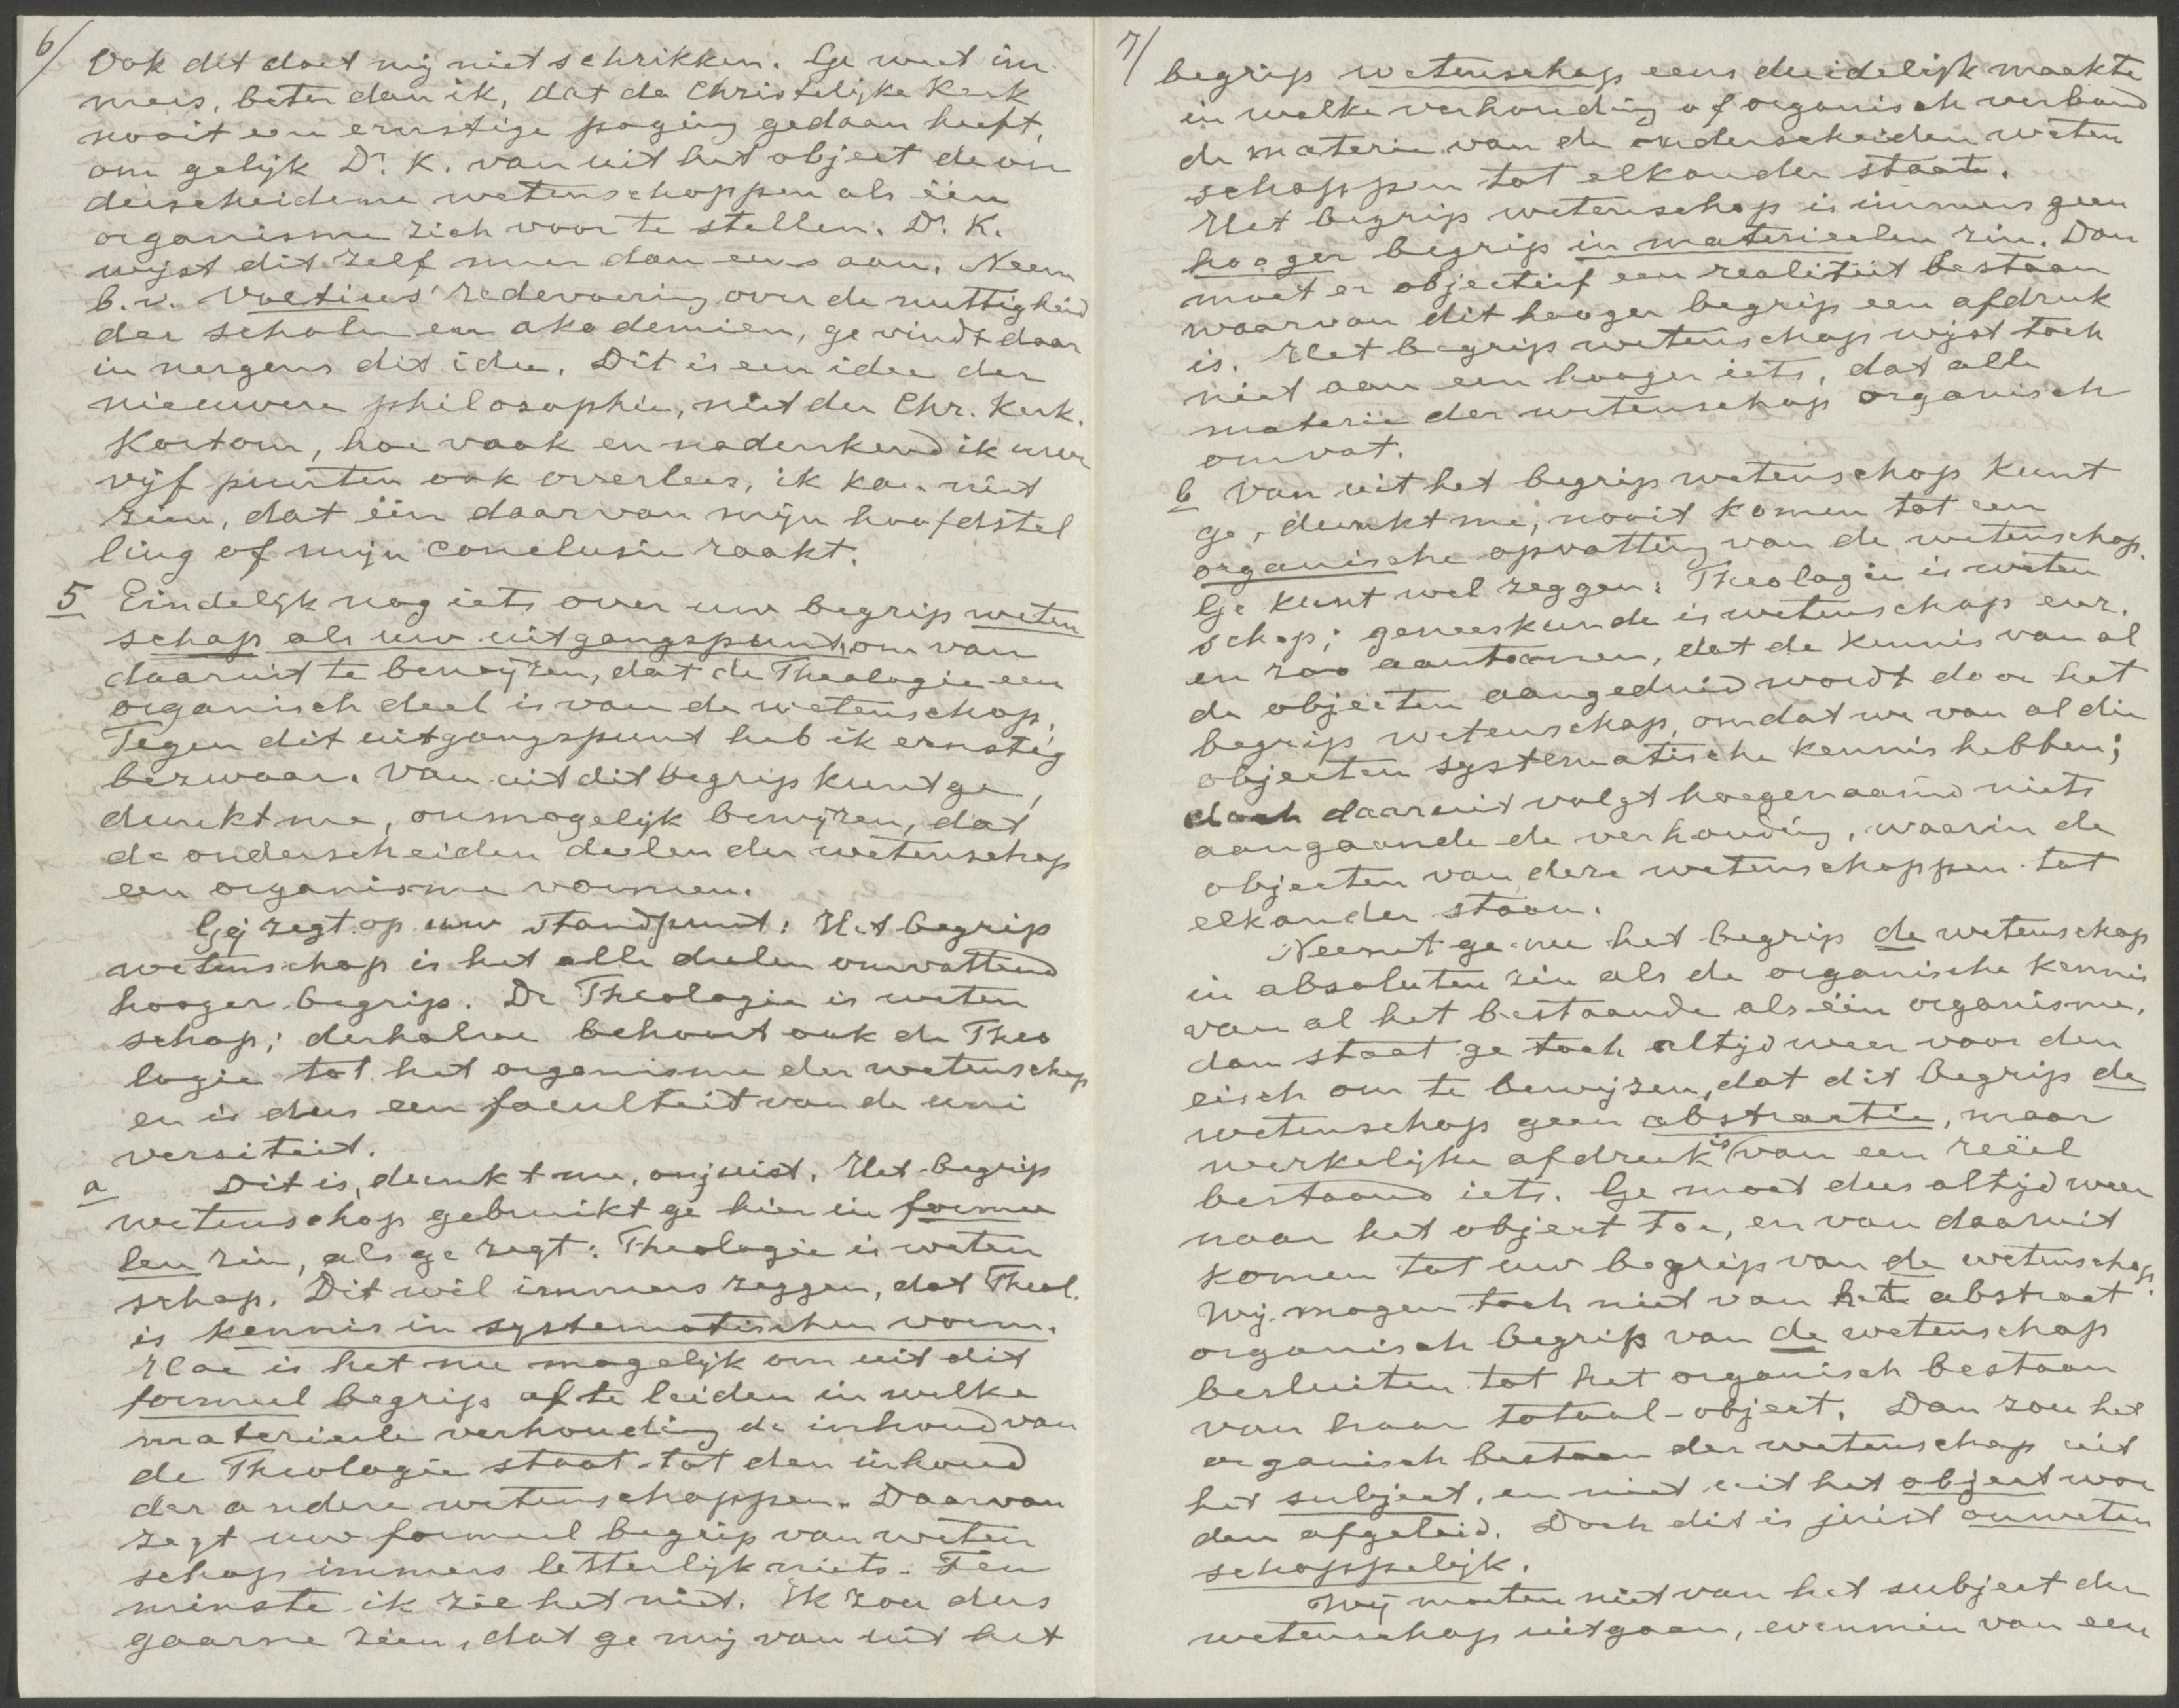 6/
Ook dit doet mij niet schrikken. Ge weet im
mers, beter dan ik, dat de Christelijke Kerk
nooit een ernstige poging gedaan heeft,
om gelijk Dr. K. van uit het object de on
derscheidene wetenschappen als één
organisme zich voor te stellen. Dr. K.
wijst dit zelf meer dan eens aan. Neem
b.v. Voetius' redevoering over de nuttigheid
der scholen en akademien, ge vindt daar
in nergens dit idee. Dit is een idee der
nieuwere philosophie, niet der Chr. Kerk.
Kortom, hoe vaak en nadenkend ik uwe
vijf punten ook overlees, ik kan niet
zien, dat één daarvan mijn hoofdstel
ling of mijn conclusie raakt.
5 Eindelijk nog iets over uw begrip weten
schap als uw uitgangspunt, om van
daaruit te bewijzen, dat de Theologie een
organisch deel is van de wetenschap.
Tegen dit uitgangspunt heb ik ernstig
bezwaar. Van uit dit begrip kunt ge,
dunkt me, onmogelijk bewijzen, dat
de onderscheiden deelen der wetenschap
een organisme vormen.
Gij zegt op uw standpunt: Het begrip
wetenschap is het alle deelen omvattend
hooger begrip. De Theologie is weten
schap; derhalve behoort ook de Theo
logie tot het organisme der wetenschap
en is dus een faculteit van de uni
versiteit.
a Dit is, dunkt me, onjuist. Het begrip
wetenschap gebruikt ge hier in formee
len zin, als ge zegt: Theologie is weten
schap. Dit wil immers zeggen, dat Theol.
is kennis in systematischen vorm.
Hoe is het nu mogelijk om uit dit
formeel begrip af te leiden in welke
materieele verhouding de inhoud van
de Theologie staat tot den inhoud
der andere wetenschappen. Daarvan
zegt uw formeel begrip van weten
schap immers letterlijk niets. Ten
minste ik zie het niet. Ik zou dus
gaarne zien, dat ge mij van uit het
7/
begrip wetenschap eens duidelijk maakte
in welke verhouding of organisch verband
de materie van de onderscheiden weten
schappen tot elkander staat.
Het begrip wetenschap is immers geen
hooger begrip in materieelen zin. Dan
moet er objectief een realiteit bestaan
waarvan dit hooger begrip een afdruk
is. Het begrip wetenschap wijst toch
niet aan een hooger iets, dat alle
materie der wetenschap organisch
omvat.
b Van uit het begrip wetenschap kunt
ge, dunkt me, nooit komen tot een
organische opvatting van de wetenschap.
Ge kunt wel zeggen: Theologie is weten
schap; geneeskunde is wetenschap enz.
en zoo aantoonen, dat de kennis van al
de objecten aangeduid wordt door het
begrip wetenschap, omdat we van al die
objecten systematische kennis hebben;
doch daaruit volgt hoegenaamd niets
aangaande de verhouding, waarin de
objecten van deze wetenschappen tot
elkander staan.
Neemt ge nu het begrip de wetenschap
in absoluten zin als de organische kennis
van al het bestaande als één organisme,
dan staat ge toch altijd weer voor den
eisch om te bewijzen, dat dit begrip de
wetenschap geen abstractie, maar
werkelijke afdruk is van een reëel
bestaand iets. Ge moet dus altijd weer
naar het object toe, en van daaruit
komen tot uw begrip van de wetenschap.
Wij mogen toch niet van het abstract
organisch begrip van de wetenschap
besluiten tot het organisch bestaan
van haar totaal-object. Dan zou het
organisch bestaan der wetenschap uit
het subject, en niet uit het object wor
den afgeleid. Doch dit is juist onweten
schappelijk.
Wij moeten niet van het subject der
wetenschap uitgaan, evenmin van een